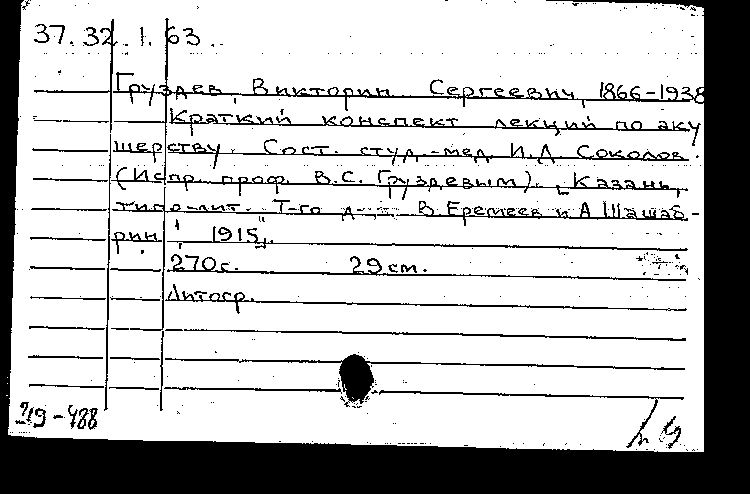 37.32.1.63.
Груздев, Викторин Сергеевич, 1866-1938
Краткий конспект лекций по аку
шерству. Сост. студ.-мед. И.Д. Соколов.
(Испр. проф. В.С. Груздевым). [Казань,
типо-лит. Т-го д-. „В. Еремеев и А. Шашаб-
рин", 1915].
270с. 29см.
Литогр.
-488